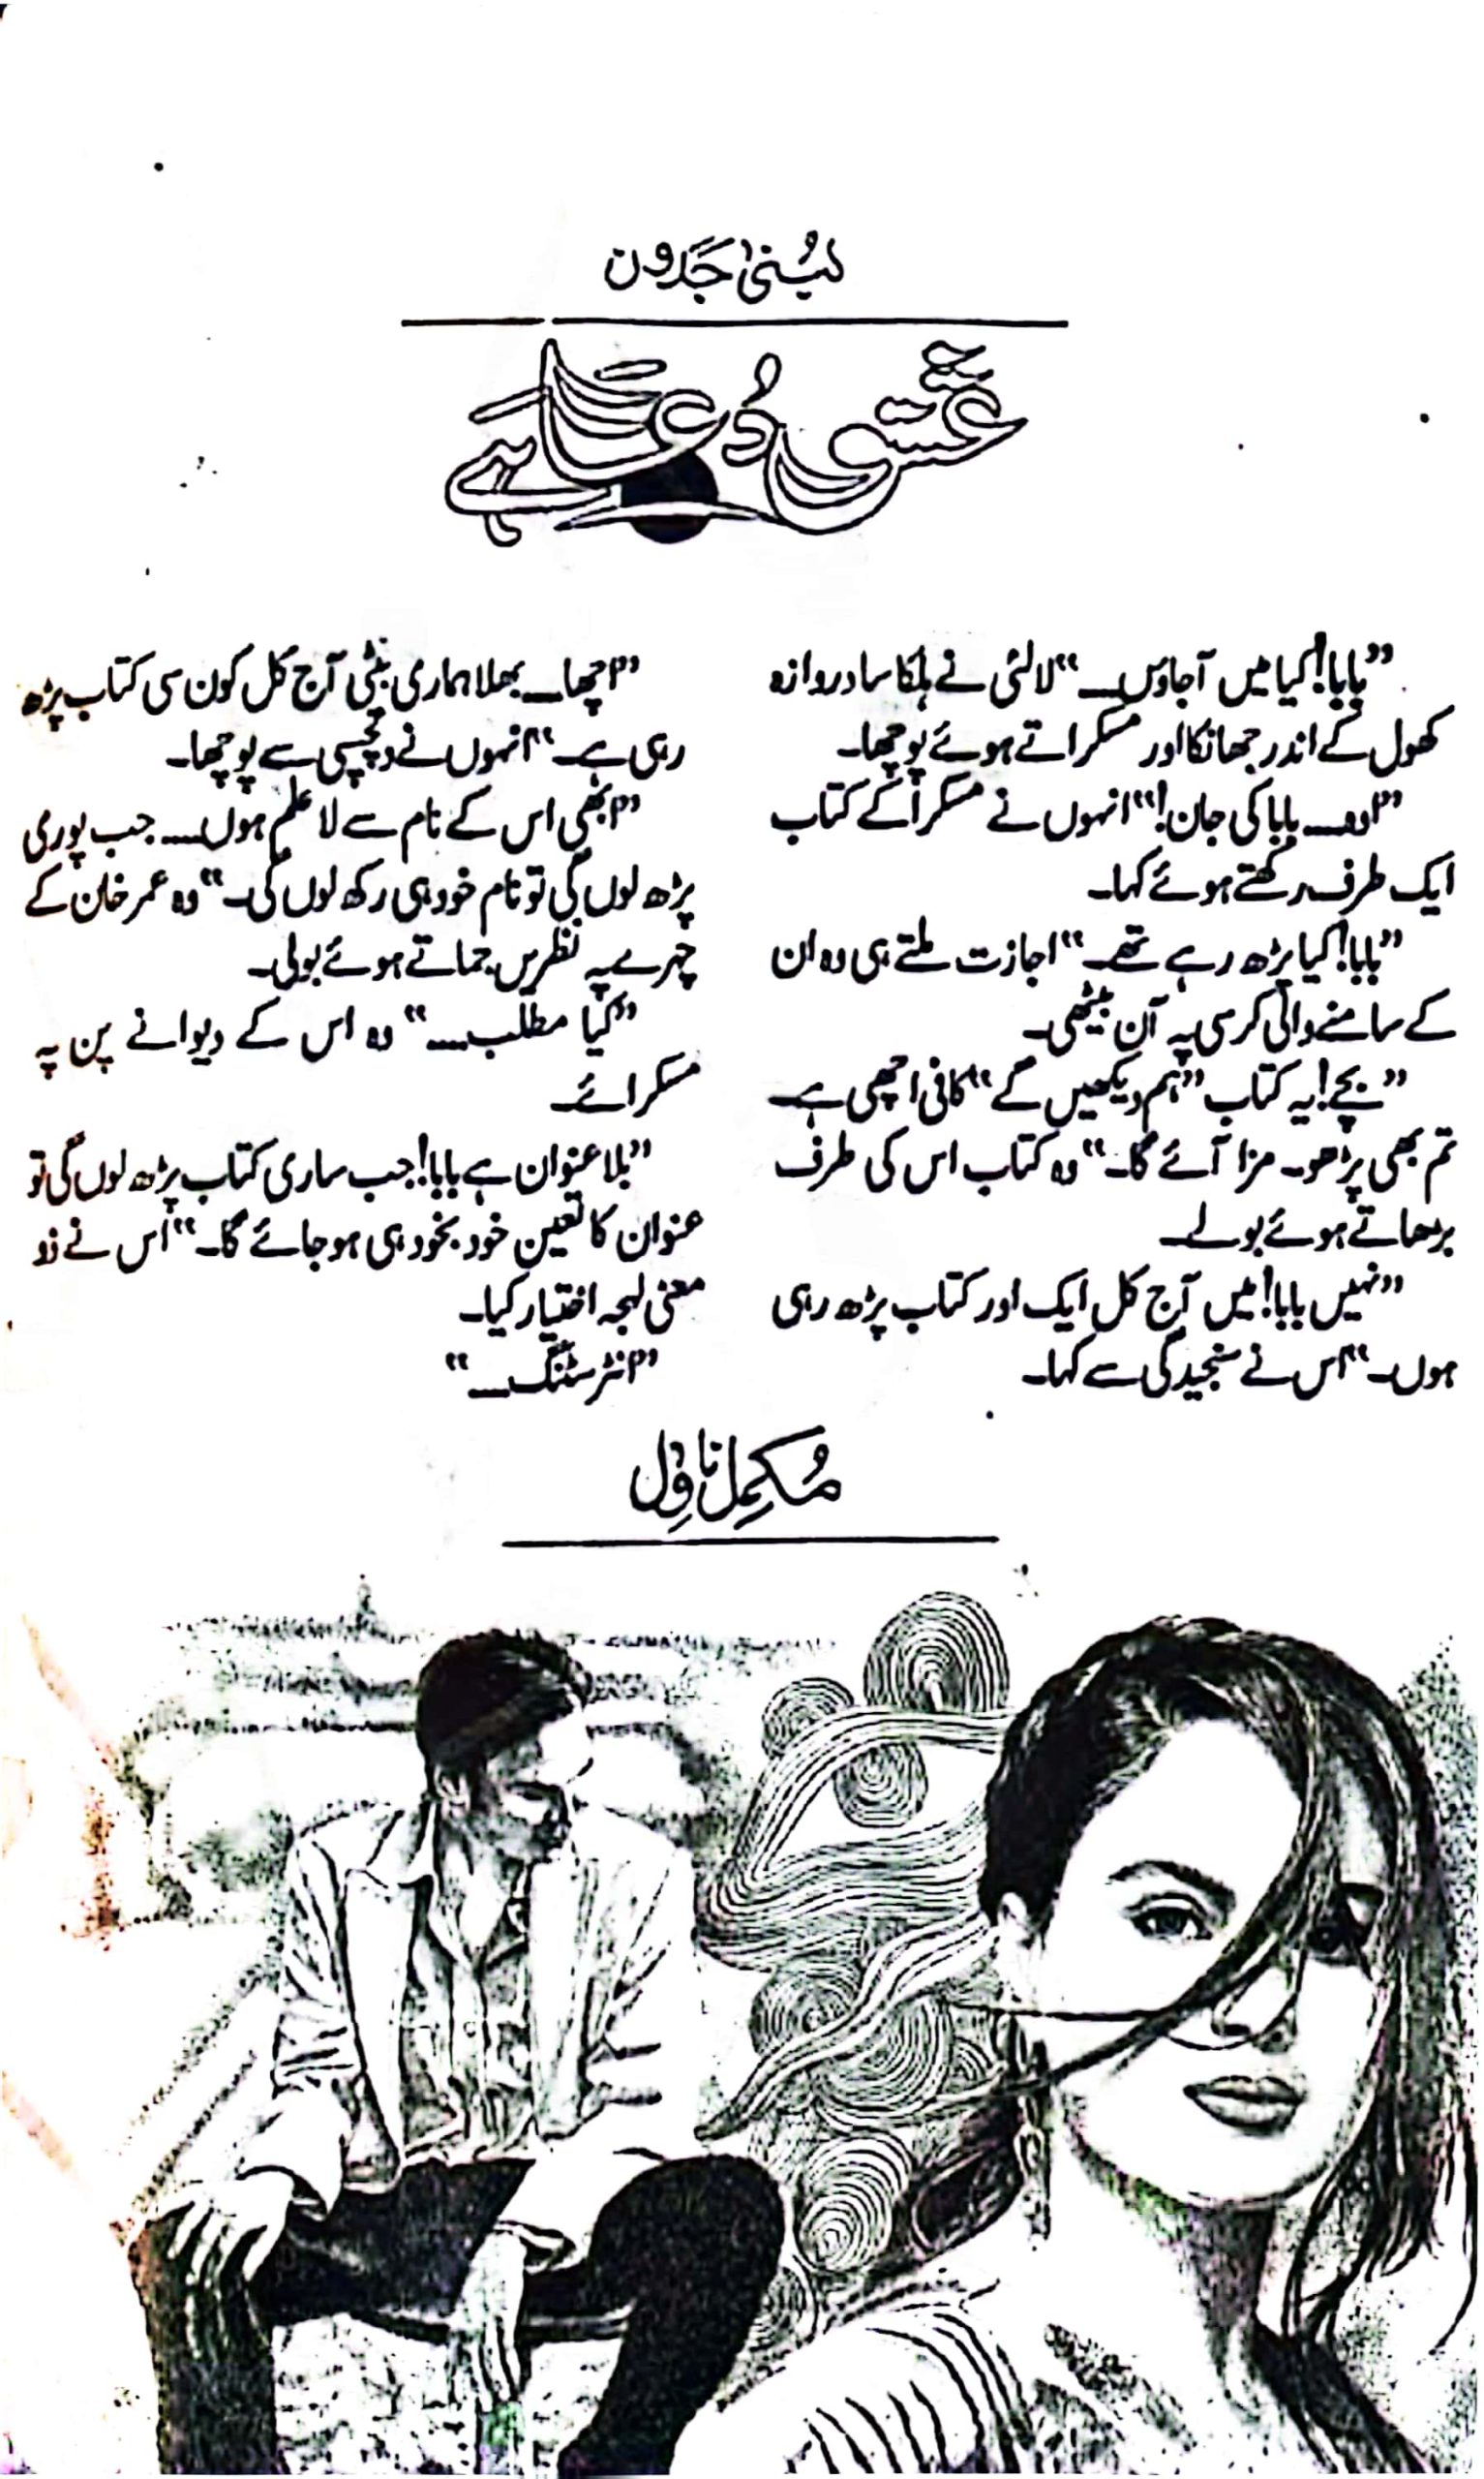 لبنیٰ جدون
عشق دُعا ہے
”بابا! کیا میں آجاؤں۔“ لالئی نے ہلکا سا دروازہ
کھول کے اندر جھانکا اور مسکراتے ہوئے پوچھا۔
”اوہ۔۔۔ بابا کی جان!“ انہوں نے مسکرا کے کتاب
ایک طرف رکھتے ہوئے کہا۔
”بابا! کیا پڑھ رہے تھے۔“ اجازت ملتے ہی وہ ان
کے سامنے والی کرسی پہ آن بیٹھی۔
”بچے! یہ کتاب ”ہم دیکھیں گے“ کافی اچھی ہے۔
تم بھی پڑھو۔ مزا آئے گا۔“ وہ کتاب اس کی طرف
بڑھاتے ہوئے بولے۔
”نہیں بابا! میں آج کل ایک اور کتاب پڑھ رہی
ہوں۔“ اس نے سنجیدگی سے کہا۔
”اچھا۔ بھلا ہماری بیٹی آج کل کون سی کتاب پڑھ
رہی ہے۔“ انہوں نے دلچسپی سے پوچھا۔
”ابھی اس کے نام سے لا علم ہوں۔۔۔ جب پوری
پڑھ لوں گی تو نام خود ہی رکھ لوں گی۔“ وہ عمر خان کے
چہرے پہ نظریں جماتے ہوئے بولی۔
”کیا مطلب۔۔۔“ وہ اس کے دیوانے پن پہ
مسکرائے۔
”بلا عنوان ہے بابا! جب ساری کتاب پڑھ لوں گی تو
عنوان کا تعین خود بخود ہی ہو جائے گا۔“ اُس نے ذو
معنی لہجہ اختیار کیا۔
”انٹرسٹنگ۔۔۔“
مُکمل ناوِل